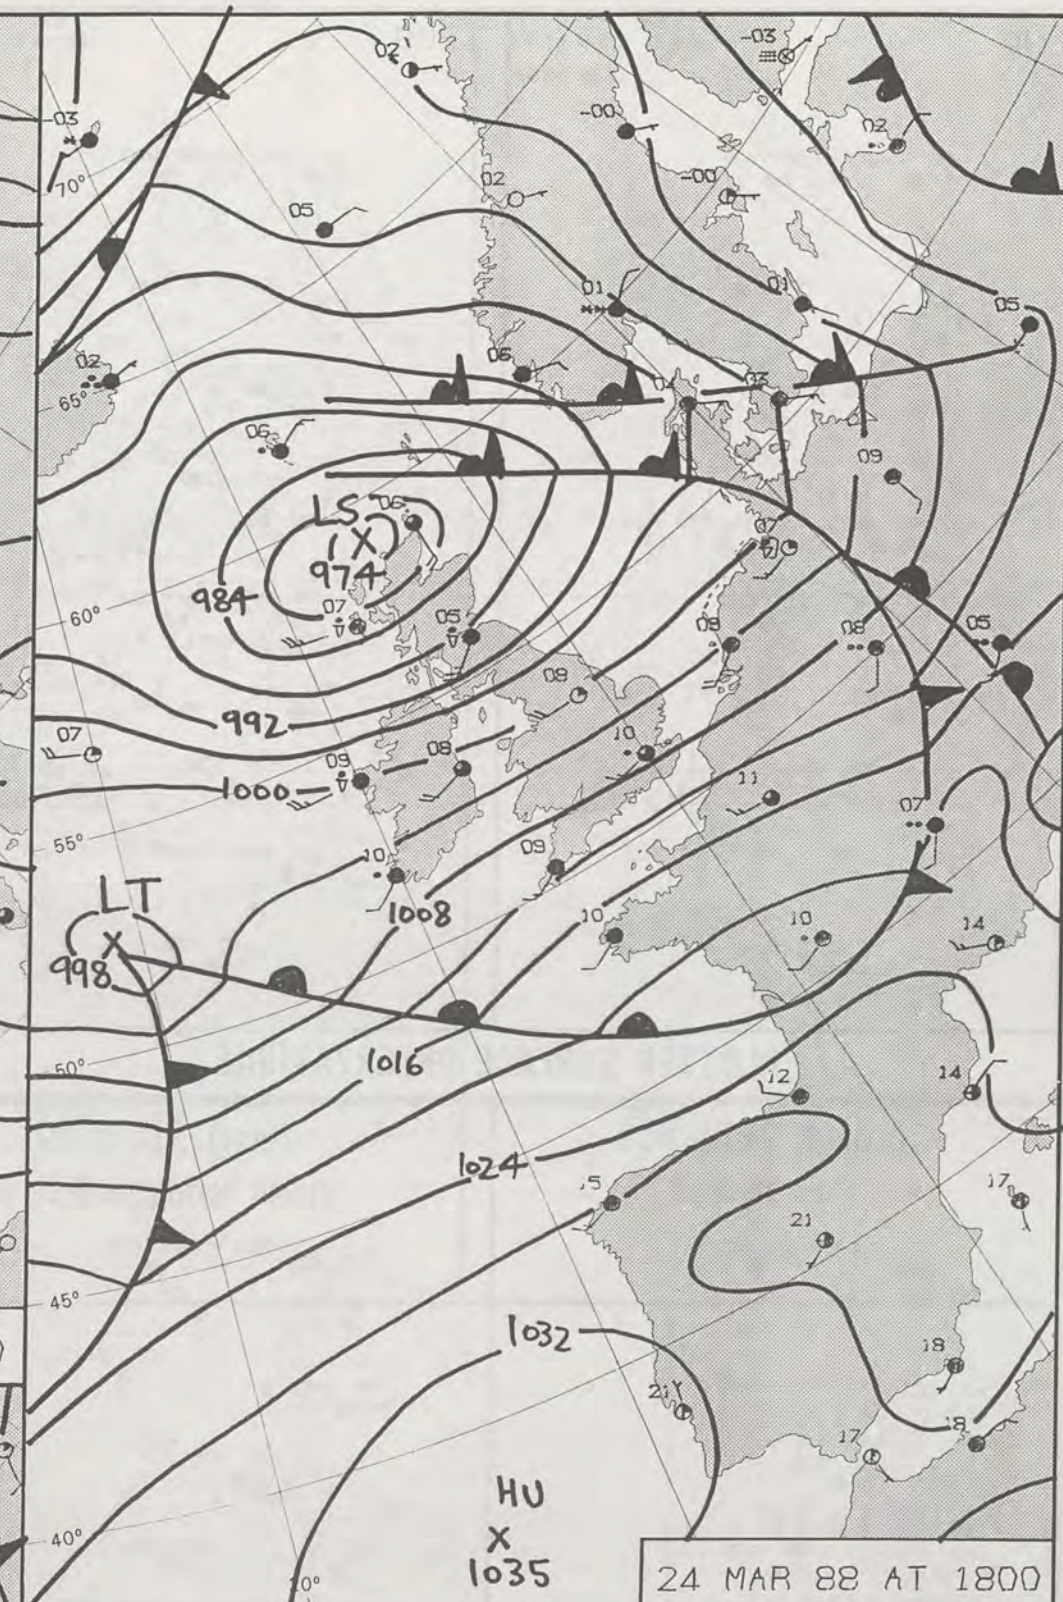 02
-03
-03
-00
02
70°
02
-00
05
01
01
05
02
06
03
65°
06
09
LS
06
974
07
984
07
05
08
05
60°
09
08
992
07
10
08
09
11
1000
07
55°
10
09
LT
1008
10
10
14
998
50°
1016
12
14
1024
15
17
21
45°
1032
18
21
18
17
HU
1035
40°
24 MAR 88 AT 1800